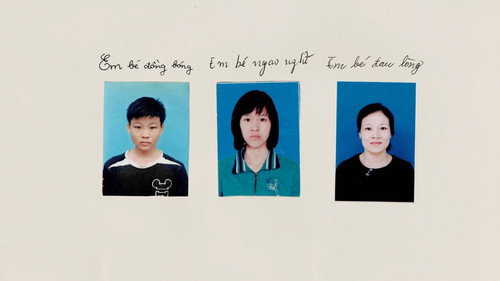 Em bé đồng bóng
Em bé ngạo nghễ
Em bé đau lòng